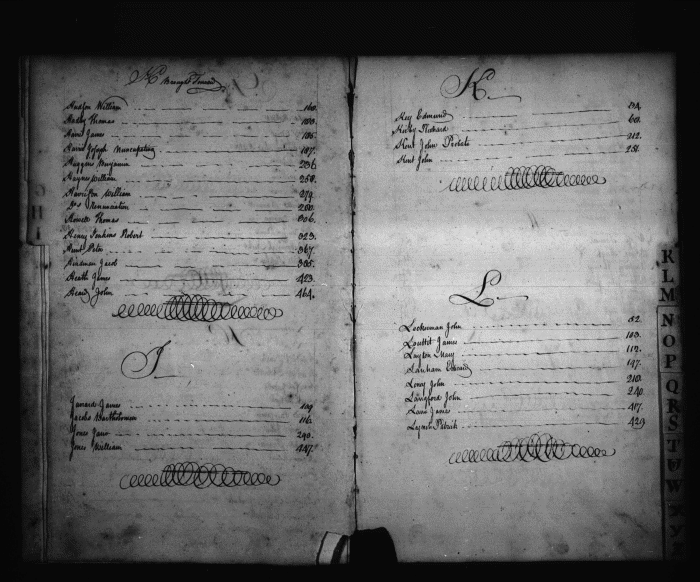 H Brought Forward
Hudson William 160.
Thomas
Harris James
Harris Joseph Nuncupating 187.
Huggins Benjamin 236
Haynes William 258.
Harrison William 279
Do Renunciation 280.
Howett Thomas 306.
Henry Jenkins Robert 323.
Hunt Peter 367.
Hindman Jacob 385.
Heath James 423.
Heard John 464.
I
James 109
Jacobs Bartholomew 116.
Jones Jane 290.
Jones William 447.
K.
Key Edmund 54.
Kirby Richard 60.
Kent John Probate 212.
Kent John 251.
L
Lockerman John 52.
James 103.
Layton Mary 112.
Lanham Edward 197.
Long John 210.
Langford John 240.
James 417.
Patrick 429
G
H
I
K
L
M
N
O
P
Q
R
S
T
V
W
X
Y